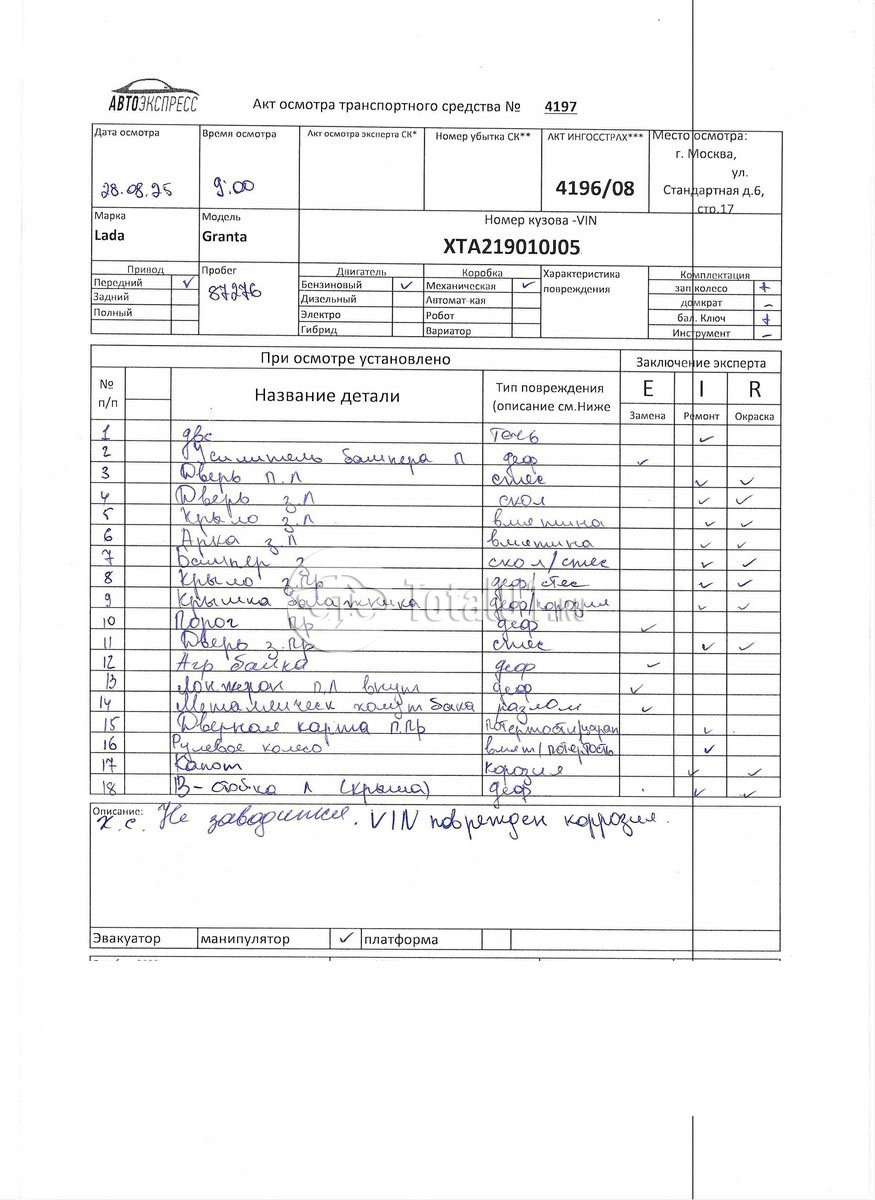 АВТОЭКСПРЕСС
Акт осмотра транспортного средства № 4197
Дата осмотра
28.08.25
Время осмотра
9:00
Акт осмотра эксперта СК*
Номер убытка СК**
АКТ ИНГОССТРАХ***
4196/08
Место осмотра:
г. Москва,
ул.
Стандартная д.6,
стр.17
Марка
Lada
Модель
Granta
Номер кузова -VIN
XTA219010J05
Привод
Передний ✓
Задний
Полный
Пробег
87276
Двигатель
Бензиновый ✓
Дизельный
Электро
Гибрид
Коробка
Механическая ✓
Автомат кая
Робот
Вариатор
Характеристика
повреждения
Комплектация
зап колесо +
домкрат –
бал. Ключ +
Инструмент –
При осмотре установлено
Заключение эксперта
№
п/п
Название детали
Тип повреждения
(описание см.Ниже
E I R
Замена Ремонт Окраска
1 двс течь ✓
2 Усилитель бампера П деф ✓
3 Дверь п.л стес ✓ ✓
4 Дверь з.л скол ✓ ✓
5 Крыло з.л вмятина ✓ ✓
6 Арка з.л вмятина ✓ ✓
7 Бампер з скол/стес ✓ ✓
8 Крыло з.пр деф/стес ✓ ✓
9 Крышка багажника деф/корозия ✓ ✓
10 Порог пр деф ✓
11 Дверь з.пр стес ✓ ✓
12 деф ✓
13 Лонжерон п.л внут деф ✓
14 Металлическ хомут бака разлом ✓
15 Дверная карта п.пр потертости/царап ✓
16 Рулевое колесо вмят/потертость ✓
17 Капот корозия ✓ ✓
18 В-стойка л (крыша) деф ✓ ✓
Описание:
х.с. Не заводится. VIN поврежден коррозия.
Эвакуатор манипулятор ✓ платформа
Total01.ru